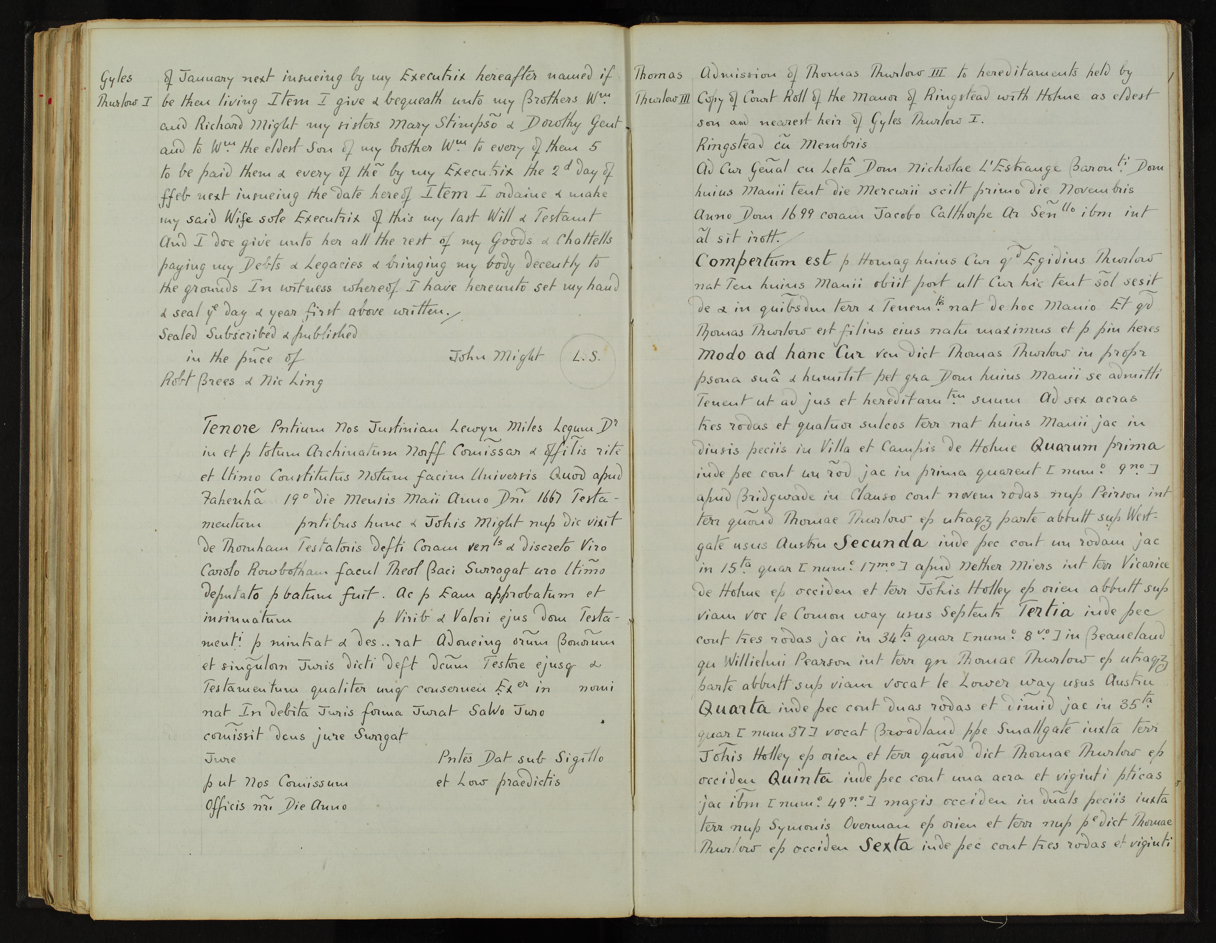 Gyles
Thurlow I
of January next insueing by my Executrix hereafter named if
be then living Item I give & bequeath unto my Brothers Wm
and Richard Might my sisters Mary Stimpsō & Dorothy Gent
and to Wm the eldest Son of my brother Wm to every of them 5
to be paid them & every of thē by my Executrix the 2d day of
ffeb next insueing the date hereof Item I ordaine & make
my said Wife sole Executrix of this my last Will & Testamt
And I doe give unto her all the rest of my Goods & Chattells
paying my Debts & Legacies & bringing my body decently to
the grounds In witness whereof I have hereunto set my hand
& seal ye day & year first above written.
Sealed Subscribed & published
in the p̄nce of John Might L. S.
Robt Brees & Nic Ling
Tenore Pntium Nos Justinian Lewyn Miles Legum Dr
in et p totum Archinatum Norff Com̄issar & offitīs rite
et ltimo Constitutus Notum facim Universis Quod apud
Fakenhā 19o die Mensis Maii Anno Dn̄i 1667 Testa-
mentum pntibus hunc & Johis Might nup dic vixit
de Thornham Testatoris defti Coram venls & discreto Viro
Carolo Rowbotham facul Theol Baci Surrogat uro ltim̄o
deputato pbatum fuit. Ac p Eam approbatum et
insinuatum p Virib & Valori ejus dom Testa-
menti p mintrat & des..rat Adoneing or̄um Bonōrum
et singulorn Juris dicti deft dc̄um Testore ejusq &
Testamentum qualiter unq consernen Exer in nomi
nat In debita Juris forma Jurat Salvo Juro
com̄issit dcus jure Surrgat
Jure Pntes Dat sub Sigillo
put Nos Comissum et Low praedictis
Officis nr̄i Die Anno
Thomas
Thurlow III
Admission of Thomas Thurlow III to hereditaments held by
Copy of Court Roll of the Manor of Ringstead with Holme as eldest
son and nearest heir of Gyles Thurlow I.
Ringstead cū Membris
Ad Cur Gen̄al cu Letâ Dom Nicholae L'Estrange Baronti Dom
huius Manii tent die Mercurii scilt primo die Novembris
Anno Dom 1699 coram Jacobo Calthorpe Ar Sen̄llo ibm int
āl sit irott.
Compertum est p Homag huius Cur qd Egidius Thurlow
nat Ten huius Manii obiit post ult Cur hic tent sōl sesit
de & in quibsdm terr & Tenemtis nat de hoc Manio Et qd
Thomas Thurlow est filius eius natu maximus et p pin heres
Modo ad hanc Cur ven dict Thomas Thurlow in propr
psona suâ & humilit pet gra Dom huius Manii se admitti
Tenent ut ad jus et hereditamtm suum Ad sex acras
tres rodas et quatuor sulcos terr nat huius Manii jac in
diusis peciis in Villa et Campis de Holme Quarum prima
inde pec cont un rōd jac in prima quarent [numo 9no]
apud Bridgwade in Clauso cont novem rodas nup Peirson int
terr quōnd Thomae Thurlow ep utraqz parte abbutt sup West-
gate usus Austru Secunda inde pec cont un rodam jac
in 15ta quar [numo 17mo] apud Nether Miers int terr Vicarice
de Holme ep occiden et terr Joh̄is Holley ep orien abbutt sup
viam voc le Comon way usus Septentr Tertia inde pec
cont tres rodas jac in 34ta quar [numo 8vo] in Beaneland
qn Willielmi Pearson int terr qn Thomae Thurlow ep utraqz
parte abbutt sup viam vocat le Lower way usus Austru
Quarta inde pec cont duas rodas et dimid jac in 35ta
quar [num 37] vocat Broadland ppe Smallgate iuxta terr
Joh̄is Holley ep orien et terr quōnd dict Thomae Thurlow ep
occiden Quinta inde pec cont una acra et viginti pticas
jac ibm [numo 49no] magis occiden in duāls peciis iuxta
terr nup Symonis Overman ep orien et terr nup pedict Thomae
Thurlow ep occiden Sexta inde pec cont tres rodas et viginti